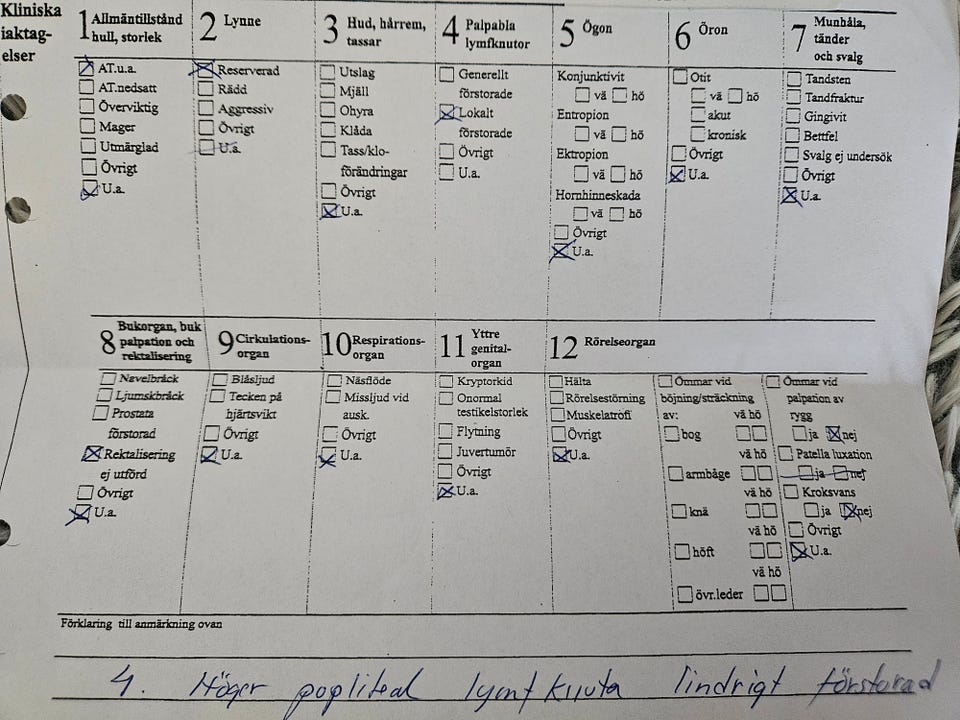 Kliniska
iaktag-
elser
1 Allmäntillstånd
hull, storlek
AT.u.a.
AT.nedsatt
Överviktig
Mager
Utmärglad
Övrigt
U.a.
2 Lynne
Reserverad
Rädd
Aggressiv
Övrigt
U.a.
3 Hud, hårrem,
tassar
Utslag
Mjäll
Ohyra
Klåda
Tass/klo-
förändringar
Övrigt
U.a.
4 Palpabla
lymfknutor
Generellt
förstorade
Lokalt
förstorade
Övrigt
U.a.
5 Ögon
Konjunktivit
vä hö
Entropion
vä hö
Ektropion
vä hö
Hornhinneskada
vä hö
Övrigt
U.a.
6 Öron
Otit
vä hö
akut
kronisk
Övrigt
U.a.
7 Munhåla,
tänder
och svalg
Tandsten
Tandfraktur
Gingivit
Bettfel
Svalg ej undersök
Övrigt
U.a.
8 Bukorgan, buk
palpation och
rektalisering
Navelbråck
Ljumskbråck
Prostata
förstorad
Rektalisering
ej utförd
Övrigt
U.a.
9 Cirkulations-
organ
Blåsljud
Tecken på
hjärtsvikt
Övrigt
U.a.
10 Respirations-
organ
Näsflöde
Missljud vid
ausk.
Övrigt
U.a.
11 Yttre
genital-
organ
Kryptorkid
Onormal
testikelstorlek
Flytning
Juvertumör
Övrigt
U.a.
12 Rörelseorgan
Hälta
Rörelsestörning
Muskelatrofi
Övrigt
U.a.
Ömmar vid
böjning/sträckning
av: vä hö
bog
vä hö
armbåge
vä hö
knä
vä hö
höft
vä hö
övr.leder
Ömmar vid
palpation av
rygg
ja nej
Patella luxation
ja nej
Kroksvans
ja nej
Övrigt
U.a.
Förklaring till anmärkning ovan
4. Höger popliteal lymfknuta lindrigt förstorad